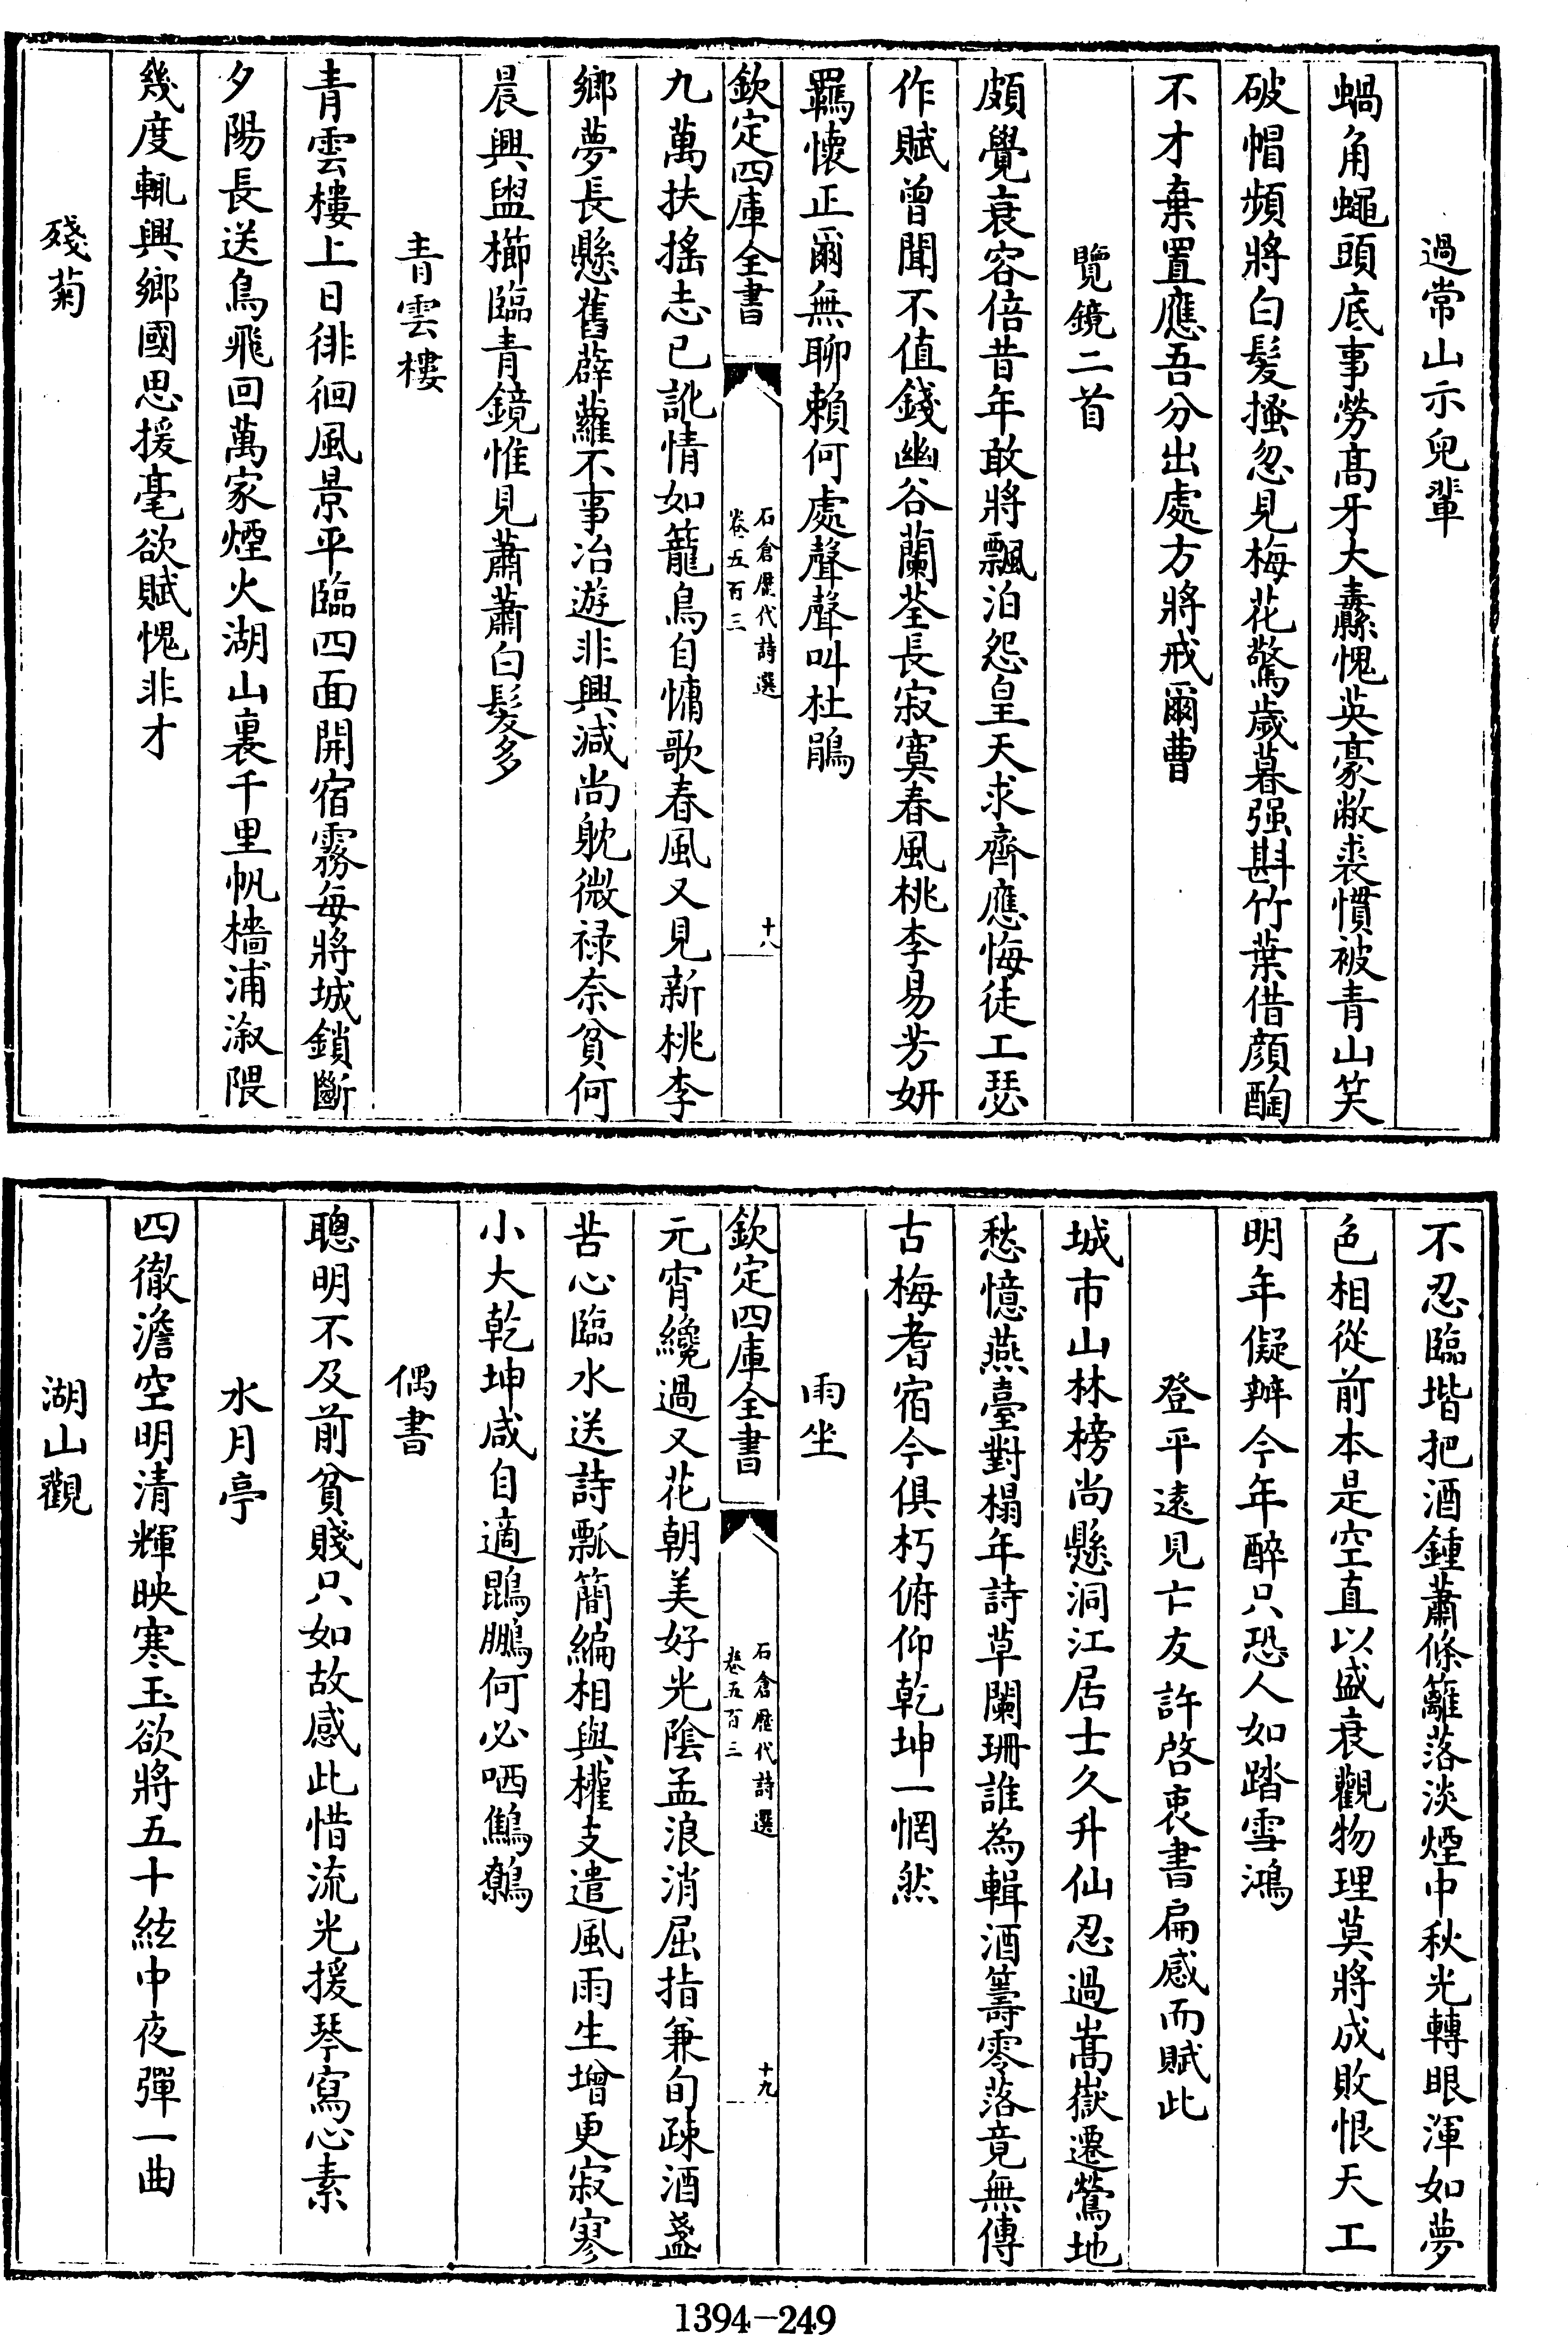 過常山示兒輩
蝸角蠅頭底事勞髙牙大纛愧英豪敝裘慣被青山笑
破帽頻將白髪搔忽見梅花驚歲暮强斟竹葉借顔酶
不才棄置應吾分出處方將戒爾曹
覽鏡二首
頗覺衰容倍昔年敢將飄泊怨皇天求齊應悔徒工瑟
作賦曾聞不值錢幽谷蘭荃長寂寞春風桃李易芳妍
羈懷正爾無聊賴何處聲聲叫杜鵑
欽定四庫全書
石倉歷代詩選
卷五百三
十八
九萬扶搖志已訛情如籠鳥自慵歌春風又見新桃李
鄉夢長懸舊薜蘿不事冶遊非興減尚躭微禄奈貧何
晨興盥櫛臨青鏡惟見蕭蕭白髪多
青雲樓
青雲樓上日徘徊風景平臨四面開宿霧每將城鎖斷
夕陽長送鳥飛回萬家煙火湖山裏千里帆檣浦漵隈
幾度輒興鄉國思援毫欲賦愧非才
殘菊
不忍臨堦把酒鍾蕭條籬落淡煙中秋光轉眼渾如夢
色相從前本是空直以盛衰觀物理莫將成敗恨天工
明年儗辦今年醉只恐人如踏雪鴻
登平遠見亡友許啓衷書扁感而賦此
城市山林榜尚懸洞江居士久升仙忍過嵩嶽遷鶯地
愁憶燕臺對榻年詩草闌珊誰為輯酒籌零落竟無傳
古梅耆宿今俱朽俯仰乾坤一惘然
雨坐
欽定四庫全書
石倉歷代詩選
卷五百三
十九
元宵纔過又花朝美好光陰孟浪消屈指兼旬疎酒盞
苦心臨水送詩瓢簡編相與權支遣風雨生增更寂寥
小大乾坤咸自適鵾鵬何必哂鷦鷯
偶書
聰明不及前貧賤只如故感此惜流光援琴寫心素
水月亭
四徹澹空明清輝映寒玉欲將五十絃中夜彈一曲
湖山觀
1394-249